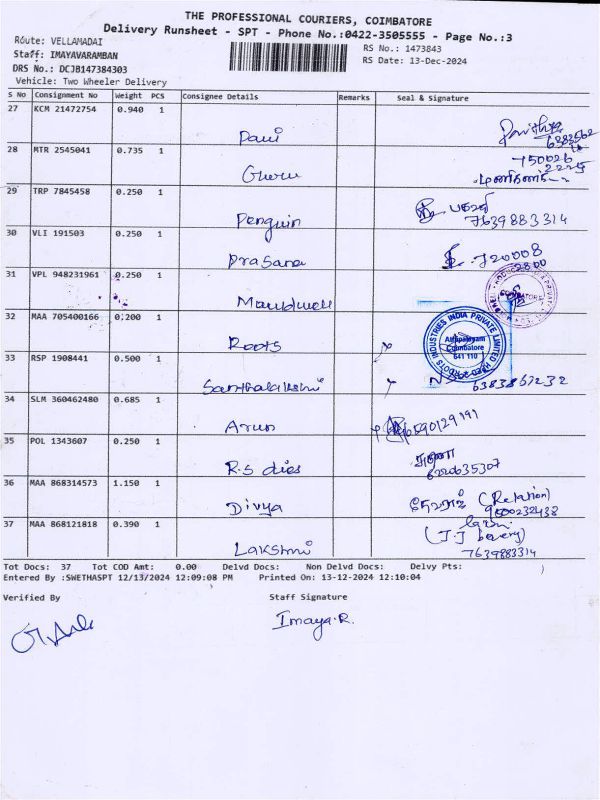 THE PROFESSIONAL COURIERS, COIMBATORE
Delivery Runsheet - SPT - Phone No.:0422-3505555 - Page No.:3
Route: VELLAMADAI
RS No.: 1473843
Staff: IMAYAVARAMBAN
RS Date: 13-Dec-2024
DRS No.: DCJB147384303
Vehicle: Two Wheeler Delivery
S No Consignment No Weight PCS Consignee Details Remarks Seal & Signature
27 KCM 21472754 0.940 1
Pavi
28 MTR 2545041 0.735 1
Guru
29 TRP 7845458 0.250 1
Penguin 7639883314
30 VLI 191503 0.250 1
Prasana 720008
2800
31 VPL 948231961 0.250 1
COIMBATORE
32 MAA 705400166 0.200 1
Roots
ROOTS INDUSTRIES INDIA PRIVATE LIMITED
Coimbatore
641 110
33 RSP 1908441 0.500 1
34 SLM 360462480 0.685 1
Arun
35 POL 1343607 0.250 1
R.S dies
36 MAA 868314573 1.150 1
Divya (Relation)
9500232438
37 MAA 868121818 0.390 1
Lakshmi
7639883314
Tot Docs: 37 Tot COD Amt: 0.00 Delvd Docs: Non Delvd Docs: Delvy Pts:
Entered By :SWETHASPT 12/13/2024 12:09:08 PM Printed On: 13-12-2024 12:10:04
Verified By Staff Signature
Imaya.R.